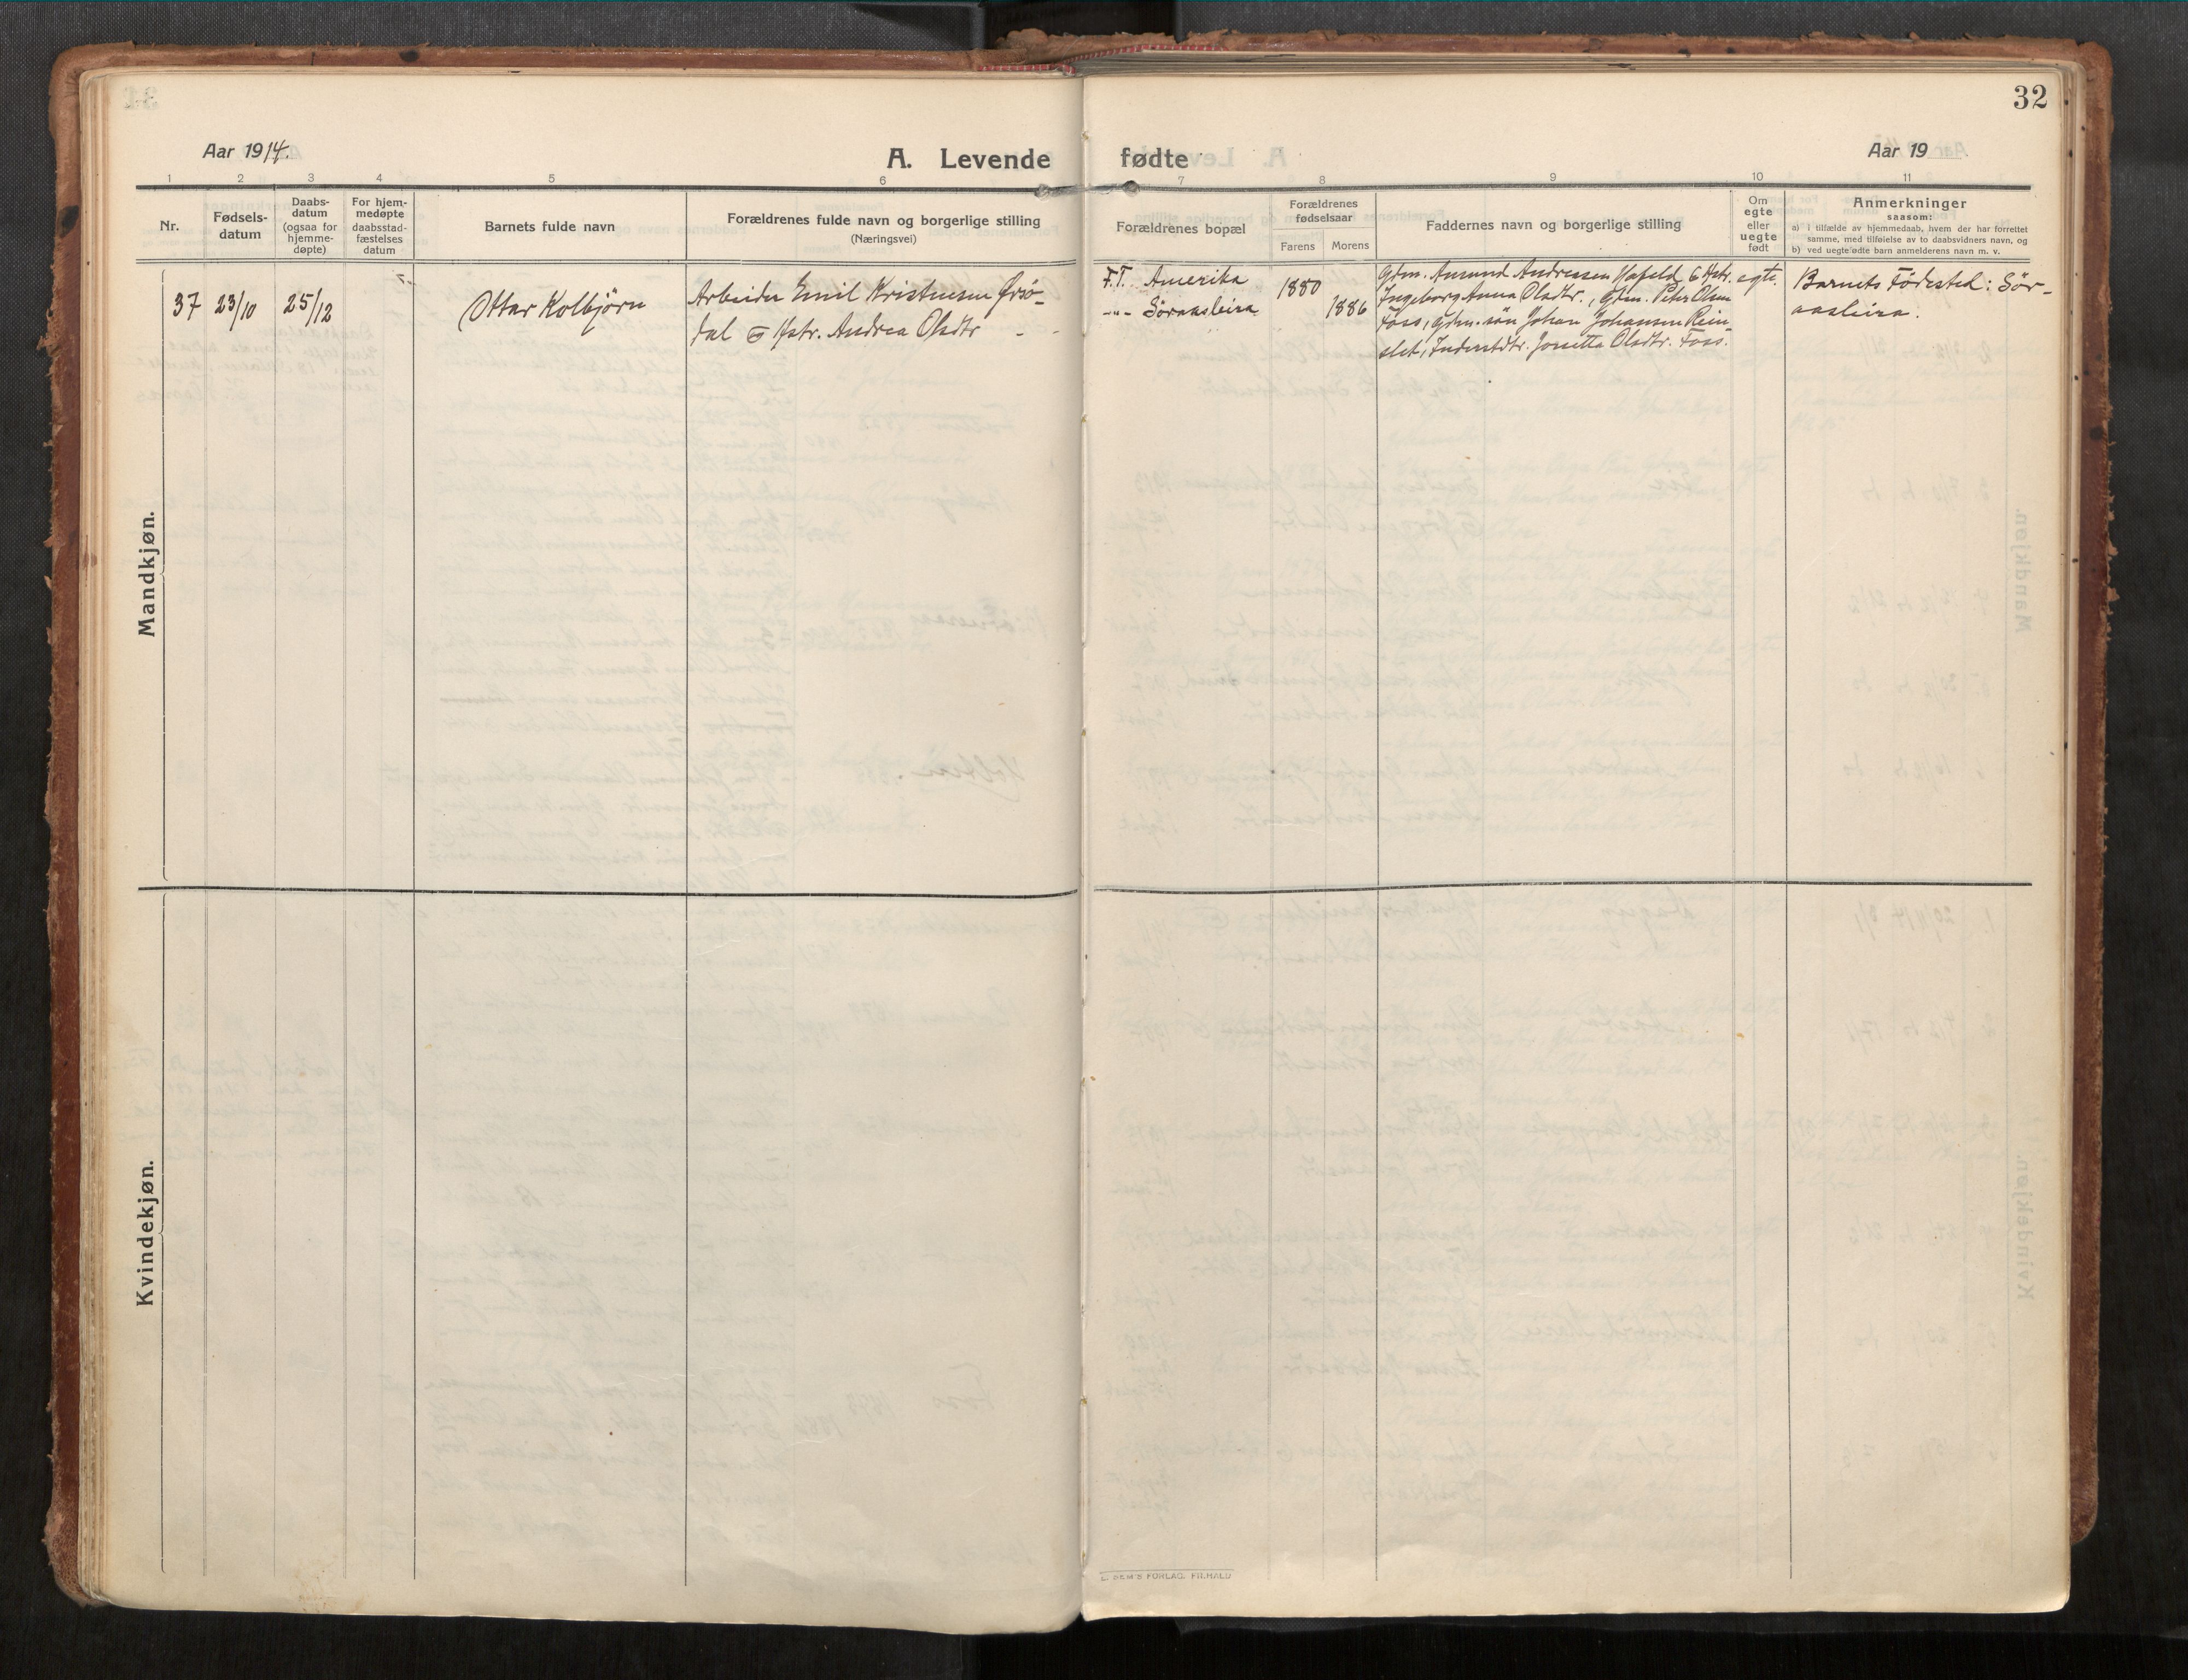 32
Aar 1914.
A. Levende fødte
Aar 19
1 2 3 4 5 6 7 8 9 10 11
Nr.
Fødsels-
datum
Daabs-
datum
(ogsaa for
hjemme-
døpte)
For hjem-
medøpte
daabsstad-
fæstelses
datum
Barnets fulde navn
Forældrenes fulde navn og borgerlige stilling
(Næringsvei)
Forældrenes bopæl
Forældrenes
fødselsaar
Farens Morens
Faddernes navn og borgerlige stilling
Om
egte
eller
uegte
født
Anmerkninger
saasom:
a) i tilfælde av hjemmedaab, hvem der har forrettet
samme, med tilføielse av to daabsvidners navn, og
b) ved uegte fødte barn anmelderens navn m. v.
Mandkjøn.
37 23/10 25/12
Ottar Kolbjörn
Arbeider Emil Kristensen Örsö-
dal Hstr. Andrea Olsdtr
F.T. Amerika
-"- Söraasleira
1880
1886
Gdm. Amund Andreassen Hafeld, Hstr.
Ingeborg Anna Olsdtr., Gdm. Peter Olsen
Foss, gdm. sön Johan Johansen Rein-
slet, Inderstdtr. Josetta Olsdtr. Foss.
egte.
Barnets Födested: Sör-
aasleira.
Kvindekjøn.
SEM'S FORLAG. FR.HALD